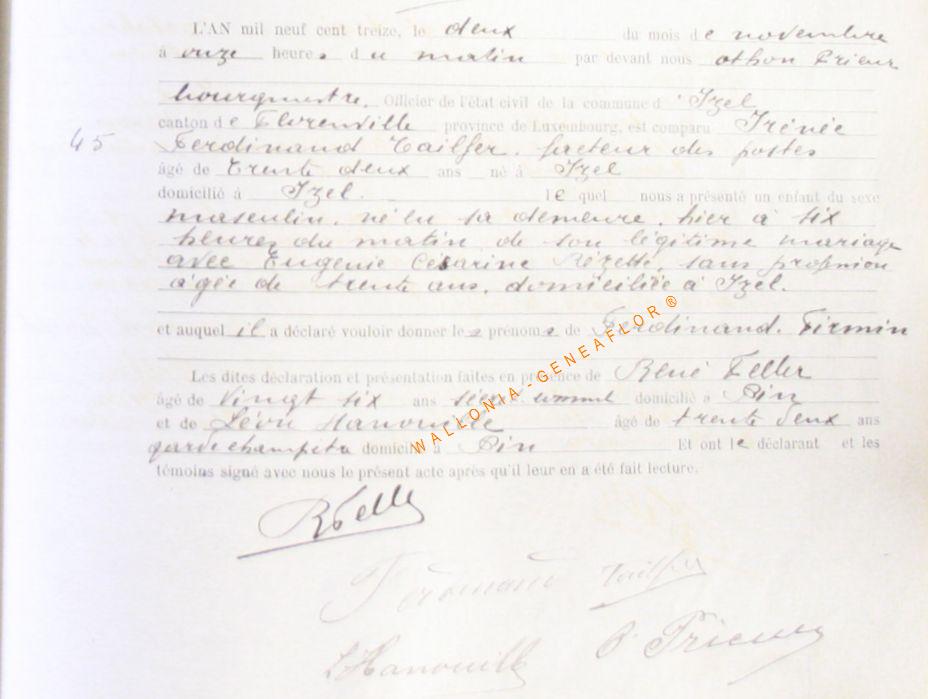 L'AN mil neuf cent treize, le deux du mois de novembre
à onze heures du matin par devant nous Othon Prieur
bourgmestre, Officier de l'état civil de la commune d'Izel
canton de Florenville province de Luxembourg, est comparu Irénée
45 Ferdinand Tailfer, facteur des postes
âgé de trente deux ans né à Izel
domicilié à Izel. lequel nous a présenté un enfant du sexe
masculin, né en sa demeure, hier à six
heures du matin, de son légitime mariage
avec Eugénie Césarine Rézette, sans profession
âgée de trente ans, domiciliée à Izel.
et auquel il a déclaré vouloir donner les prénoms de Ferdinand. Firmin
Les dites déclaration et présentation faites en présence de René Feller
âgé de vingt six ans domicilié à Pin
et de Léon Hanouille âgé de trente deux ans
garde champêtre domicilié à Pin Et ont le déclarant et les
témoins signé avec nous le présent acte après qu'il leur en a été fait lecture.
WALLONIA-GENEAFLOR®
RFeller
Ferdinand Tailfer
LHanouille O Prieur